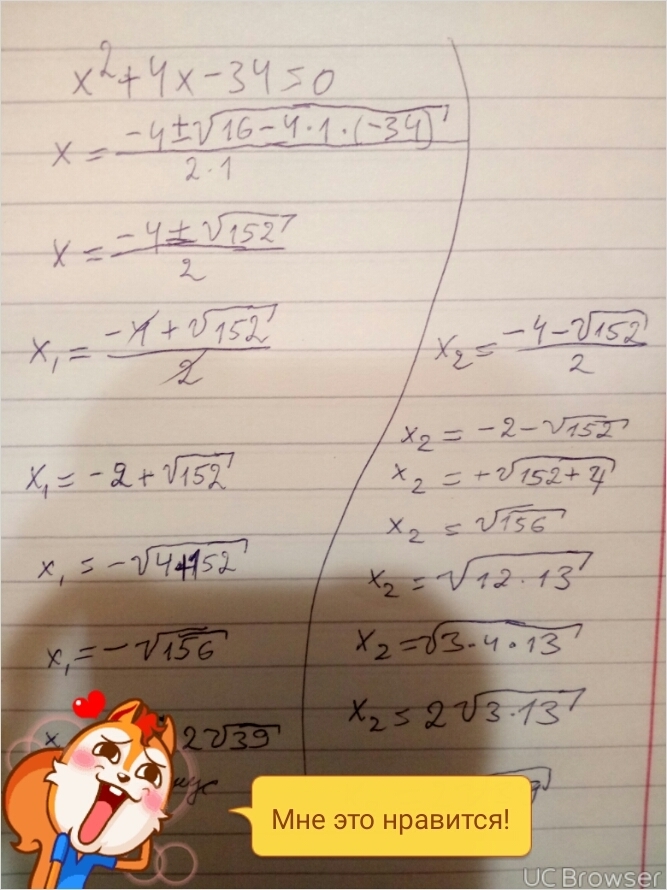 x²+4x-34=0
x = (-4±√(16-4·1·(-34)))/(2·1)
x = (-4±√152)/2
x₁ = (-4+√152)/2
x₁ = -2+√152
x₁ = -√(4+152)
x₁ = -√156
2√39
x₂ = (-4-√152)/2
x₂ = -2-√152
x₂ = +√(152+4)
x₂ = √156
x₂ = √(12·13)
x₂ = √(3·4·13)
x₂ = 2√(3·13)
Мне это нравится!
UC Browser